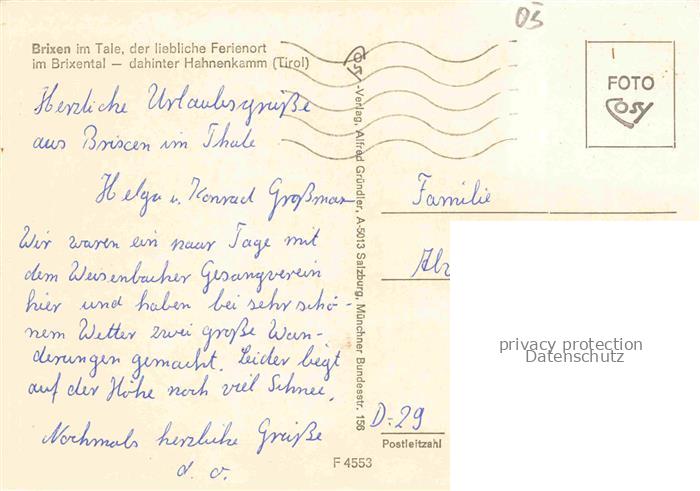 05
Brixen im Tale, der liebliche Ferienort
im Brixental — dahinter Hahnenkamm (Tirol)
FOTO
Cosy
Herzliche Urlaubsgrüße
aus Brixen im Thale
Helga u. Konrad Großman
Wir waren ein paar Tage mit
dem Weisenbacher Gesangverein
hier und haben bei sehr schö-
nem Wetter zwei große Wan-
derungen gemacht. Leider liegt
auf der Höhe noch viel Schnee.
Nochmals herzliche Grüße
d. O.
Cosy-Verlag, Alfred Gründler, A-5013 Salzburg, Münchner Bundesstr. 156
Familie
privacy protection
Datenschutz
D-29
Postleitzahl
F 4553